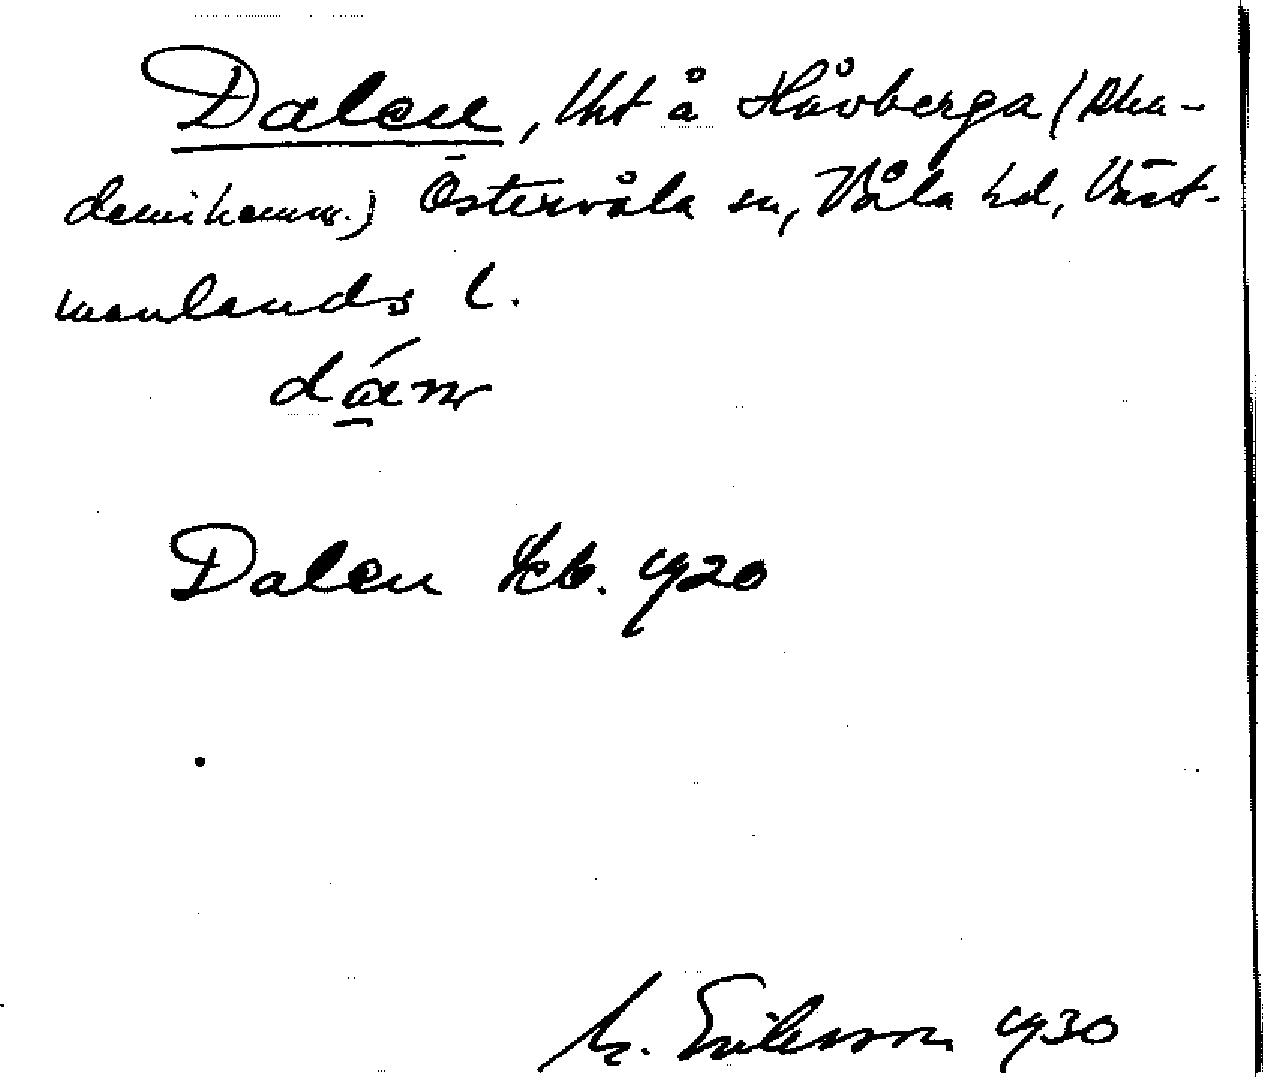 Dalen, lht å Håvberga (Aka-
demihemm.) Östervåla sn, Våla hd, Väst-
manlands l.
Dalen Jeb. 1920
M. Eriksson 1930